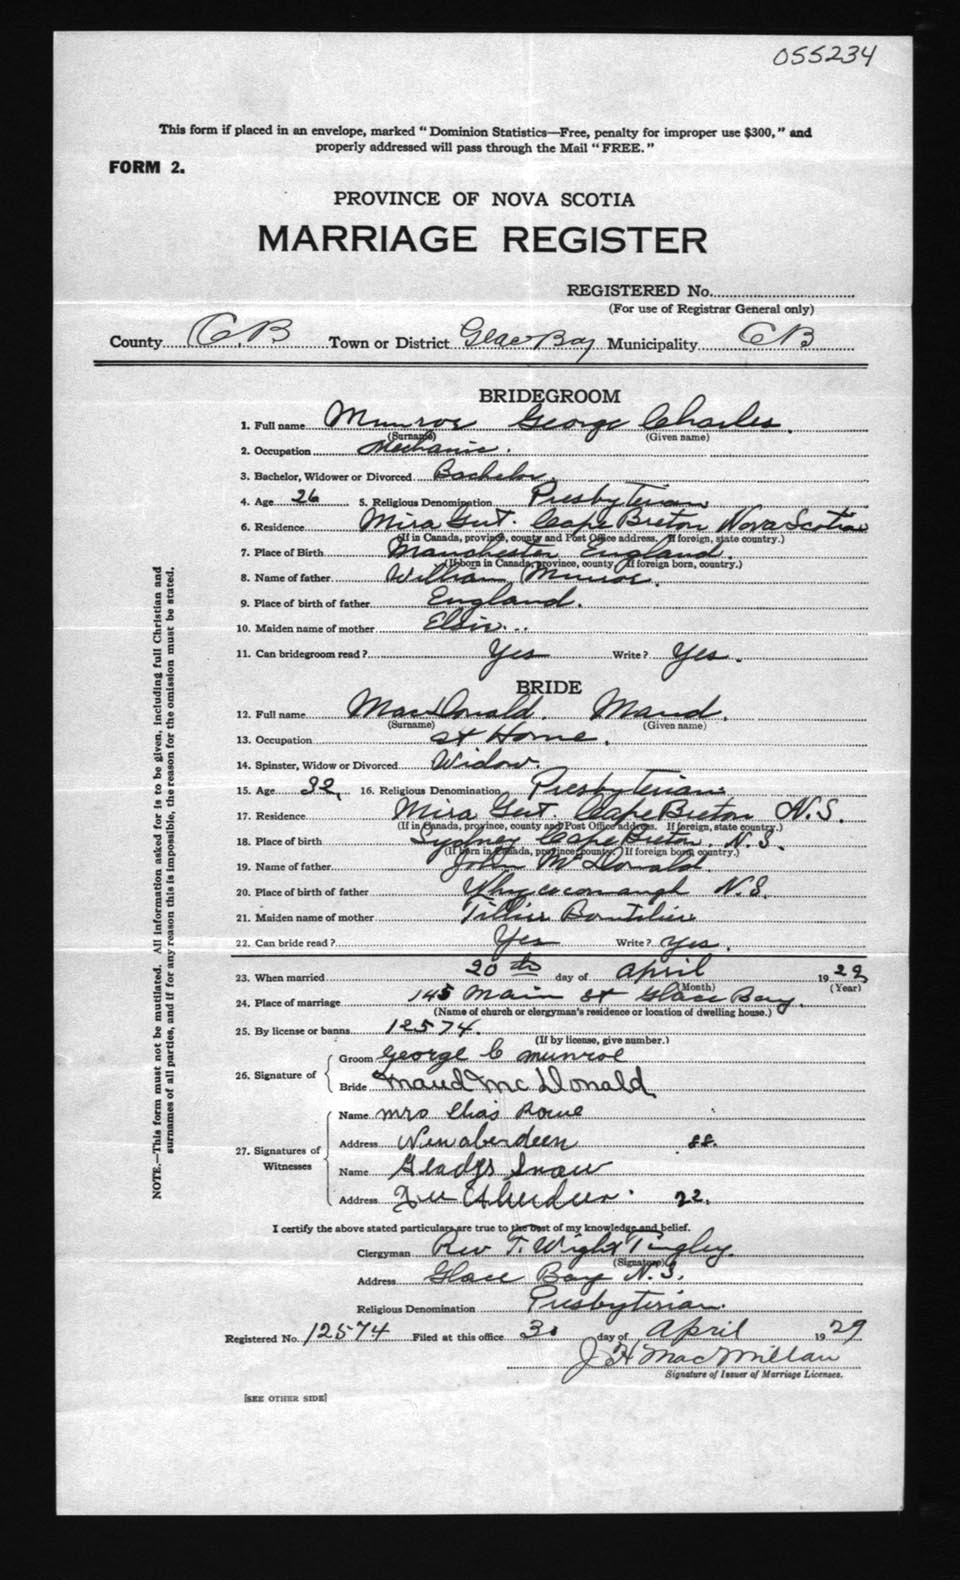 055234
This form if placed in an envelope, marked "Dominion Statistics—Free, penalty for improper use $300," and
properly addressed will pass through the Mail "FREE."
FORM 2.
PROVINCE OF NOVA SCOTIA
MARRIAGE REGISTER
REGISTERED No.
(For use of Registrar General only)
County C.B Town or District Glace Bay Municipality CB
BRIDEGROOM
1. Full name Munroe George Charles.
(Surname) (Given name)
2. Occupation Mechanic.
3. Bachelor, Widower or Divorced Bachelor
4. Age 26 5. Religious Denomination Presbyterian
6. Residence Mira Gut. Cape Breton Nova Scotia
(If in Canada, province, county and Post Office address. If foreign, state country.)
7. Place of Birth Manchester England.
(If born in Canada, province, county. If foreign born, country.)
8. Name of father William Munroe.
9. Place of birth of father England.
10. Maiden name of mother Elsie...
11. Can bridegroom read? Yes Write? Yes.
BRIDE
12. Full name MacDonald. Maud.
(Surname) (Given name)
13. Occupation at Home.
14. Spinster, Widow or Divorced Widow.
15. Age 32, 16. Religious Denomination Presbyterian
17. Residence Mira Gut. Cape Breton N.S.
(If in Canada, province, county and Post Office address. If foreign, state country.)
18. Place of birth Sydney Cape Breton. N.S.
(If born in Canada, province, county. If foreign born, country.)
19. Name of father John McDonald.
20. Place of birth of father Whycocomaugh N.S.
21. Maiden name of mother Tillie Boutilier
22. Can bride read? Yes Write? Yes.
23. When married 20th day of April 1929
(Month) (Year)
24. Place of marriage 145 Main St Glace Bay.
(Name of church or clergyman's residence or location of dwelling house.)
25. By license or banns 12574.
(If by license, give number.)
26. Signature of
Groom George C Munroe
Bride Maud McDonald
27. Signatures of Witnesses
Name Mrs Chas Rowe
Address New aberdeen 88.
Name Gladys Snow
Address New Aberdeen. 22.
I certify the above stated particulars are true to the best of my knowledge and belief.
Clergyman Rev T. Wight Tingley.
(Signature)
Address Glace Bay N.S.
Religious Denomination Presbyterian.
Registered No. 12574 Filed at this office 30 day of April 1929
J H MacMillan
Signature of Issuer of Marriage Licenses.
[SEE OTHER SIDE]
NOTE.—This form must not be mutilated. All information asked for is to be given, including full Christian and
surnames of all parties, and if for any reason this is impossible, the reason for the omission must be stated.